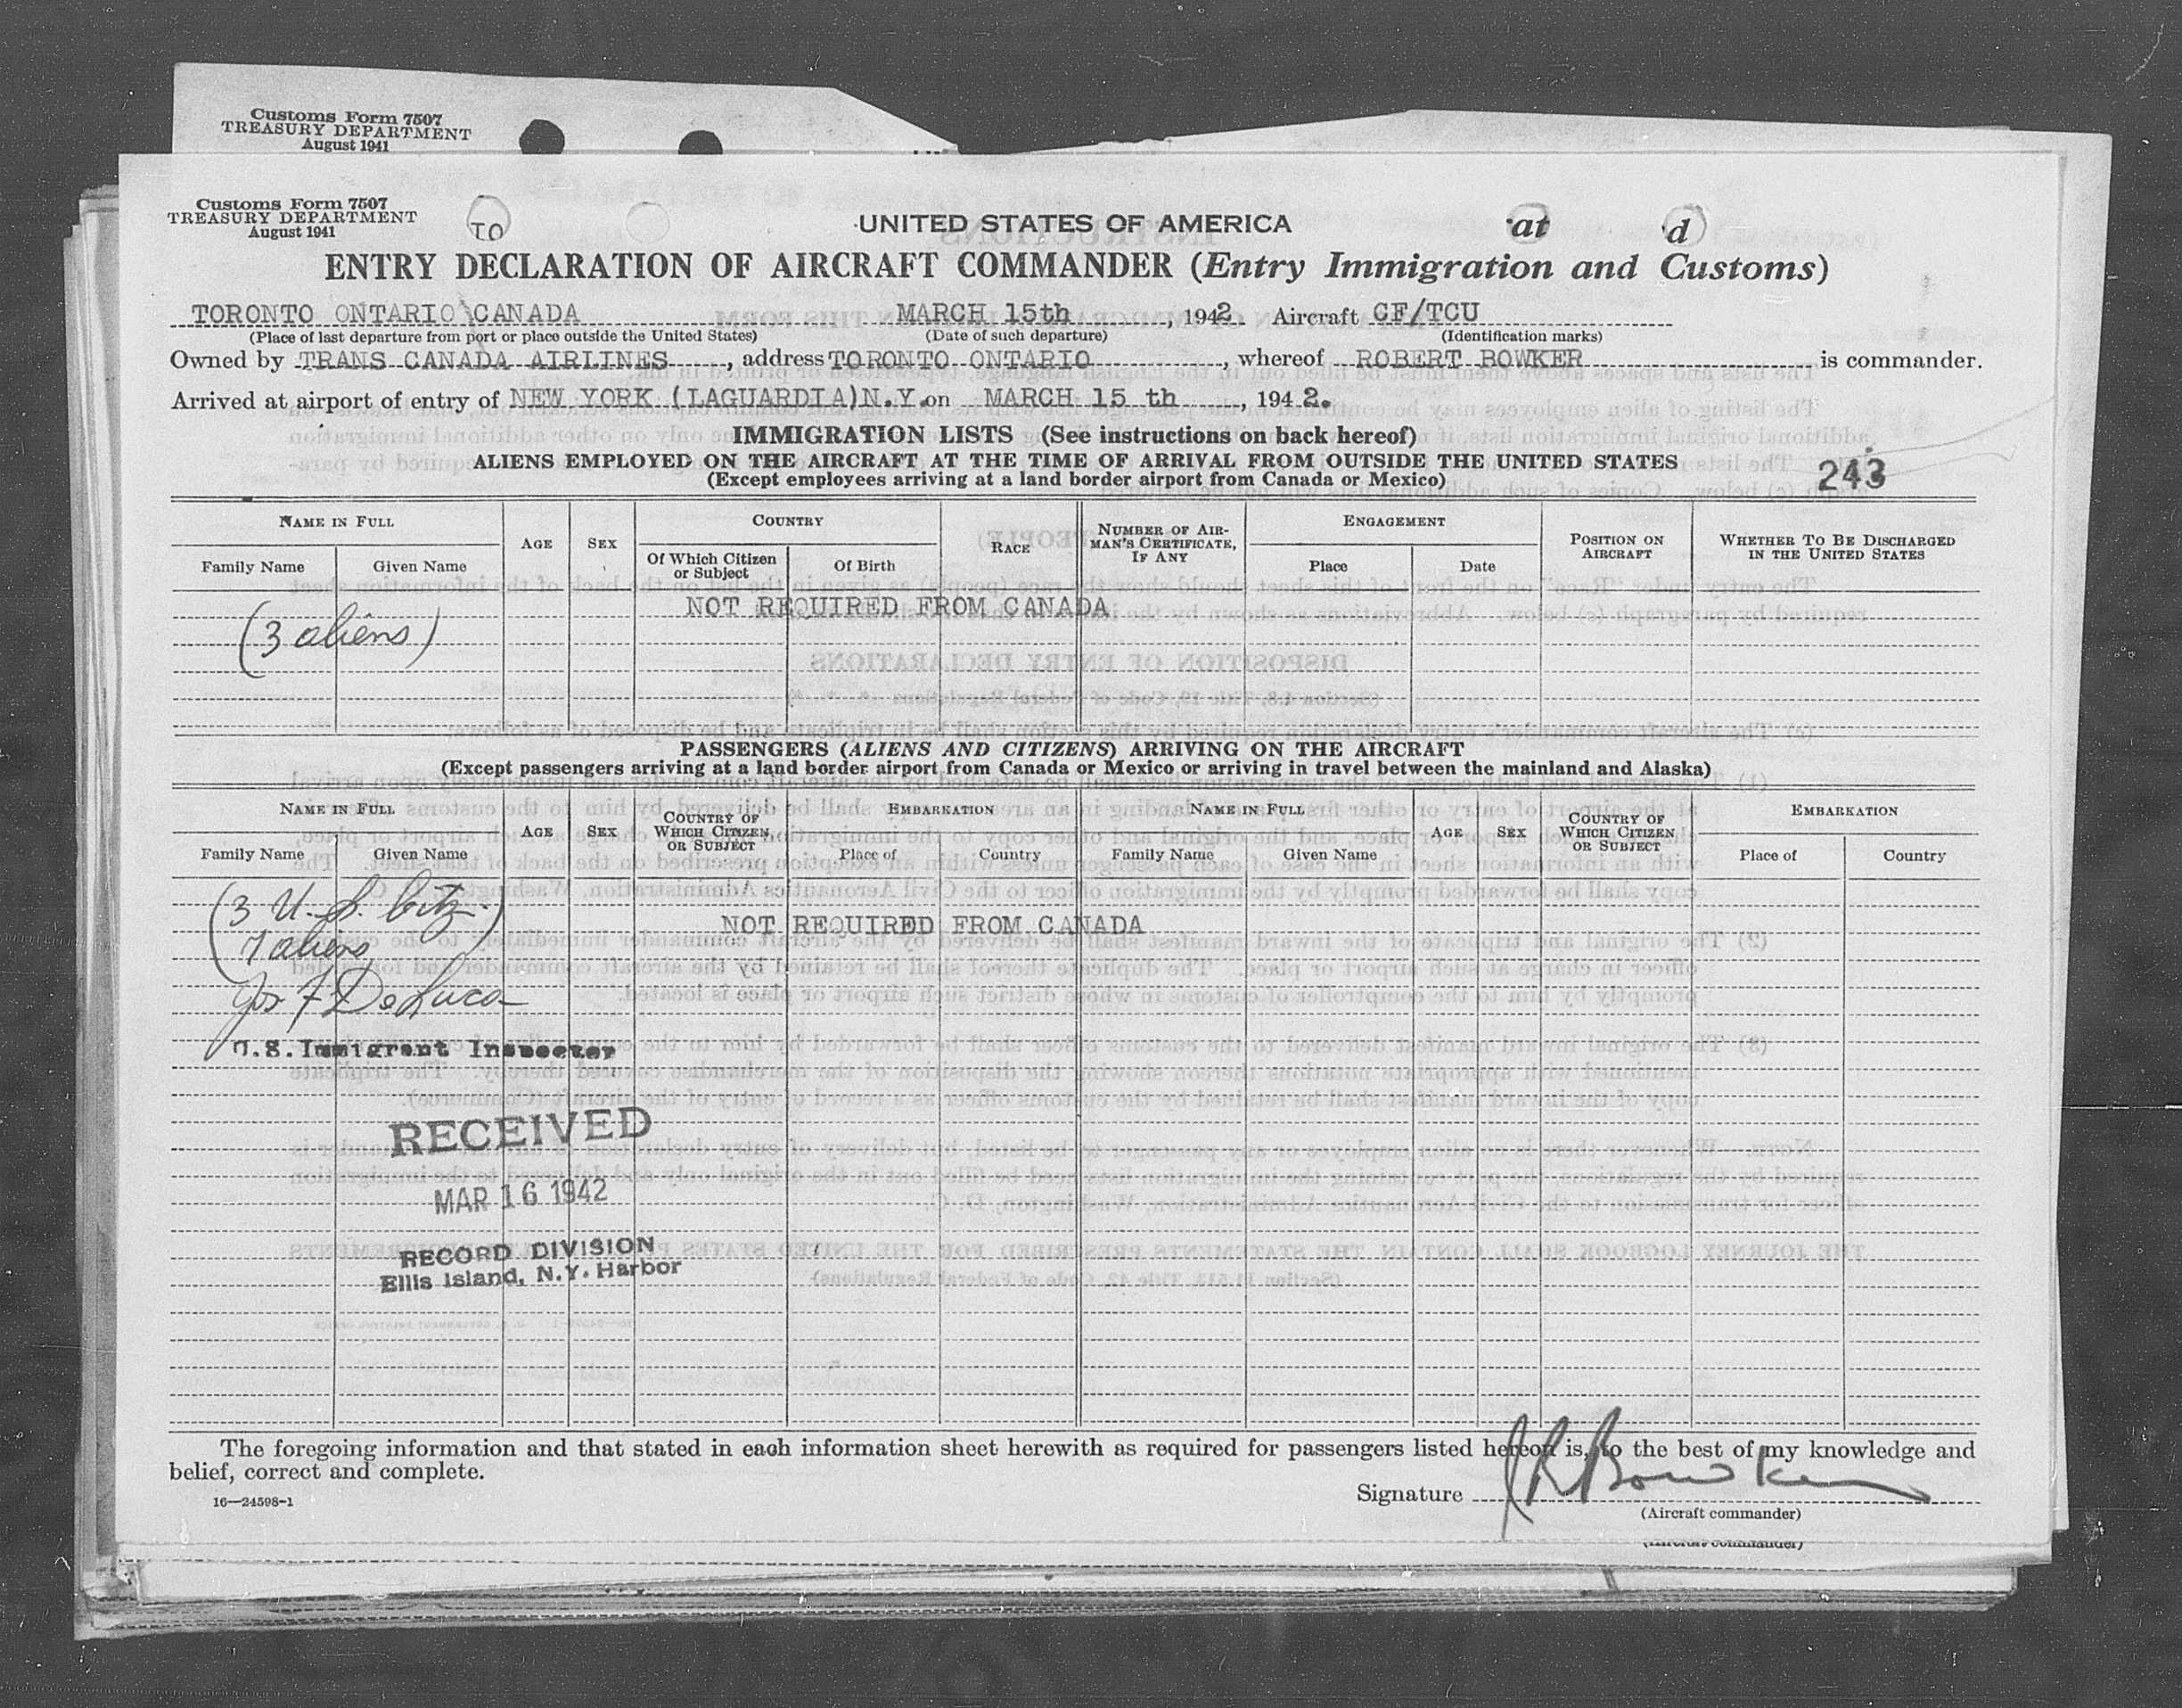 Customs Form 7507
TREASURY DEPARTMENT
August 1941
Customs Form 7507
TREASURY DEPARTMENT
August 1941
TO
UNITED STATES OF AMERICA
at
d
ENTRY DECLARATION OF AIRCRAFT COMMANDER (Entry Immigration and Customs)
TORONTO ONTARIO CANADA MARCH 15th, 1942 Aircraft CF/TCU
(Place of last departure from port or place outside the United States) (Date of such departure) (Identification marks)
Owned by TRANS CANADA AIRLINES, address TORONTO ONTARIO, whereof ROBERT BOWKER is commander.
Arrived at airport of entry of NEW YORK (LAGUARDIA) N.Y. on MARCH 15 th, 1942.
IMMIGRATION LISTS (See instructions on back hereof)
ALIENS EMPLOYED ON THE AIRCRAFT AT THE TIME OF ARRIVAL FROM OUTSIDE THE UNITED STATES
243
(Except employees arriving at a land border airport from Canada or Mexico)
NAME IN FULL AGE SEX COUNTRY RACE NUMBER OF AIRMAN'S CERTIFICATE, IF ANY ENGAGEMENT POSITION ON AIRCRAFT WHETHER TO BE DISCHARGED IN THE UNITED STATES
Family Name Given Name Of Which Citizen or Subject Of Birth Place Date
NOT REQUIRED FROM CANADA
(3 aliens)
PASSENGERS (ALIENS AND CITIZENS) ARRIVING ON THE AIRCRAFT
(Except passengers arriving at a land border airport from Canada or Mexico or arriving in travel between the mainland and Alaska)
NAME IN FULL AGE SEX COUNTRY OF WHICH CITIZEN OR SUBJECT EMBARKATION NAME IN FULL AGE SEX COUNTRY OF WHICH CITIZEN OR SUBJECT EMBARKATION
Family Name Given Name Place of Country Family Name Given Name Place of Country
(3 U.S. Citz.)
NOT REQUIRED FROM CANADA
7 aliens
Jos F DeLuca
U.S. Immigrant Inspector
RECEIVED
MAR 16 1942
RECORD DIVISION
Ellis Island, N.Y. Harbor
The foregoing information and that stated in each information sheet herewith as required for passengers listed hereon is, to the best of my knowledge and
belief, correct and complete.
16—24598-1
Signature JR Bowker
(Aircraft commander)
(Aircraft commander)